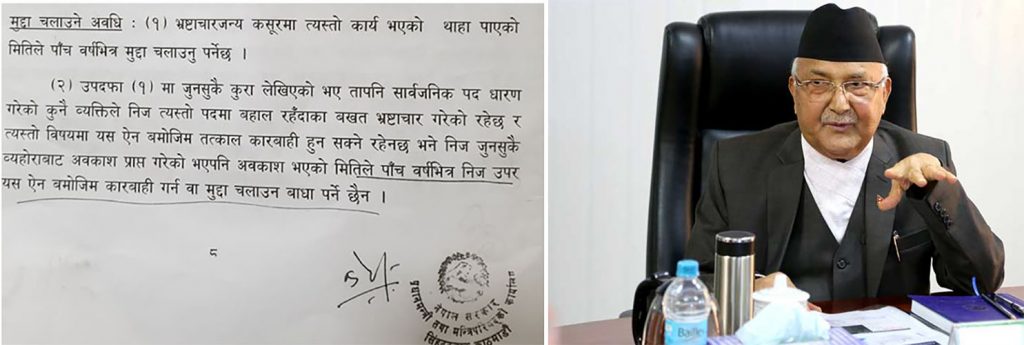 मुद्दा चलाउने अवधि : (१) भ्रष्टाचारजन्य कसूरमा त्यस्तो कार्य भएको थाहा पाएको
मितिले पाँच वर्षभित्र मुद्दा चलाउनु पर्नेछ ।
(२) उपदफा (१) मा जुनसुकै कुरा लेखिएको भए तापनि सार्वजनिक पद धारण
गरेको कुनै व्यक्तिले निज त्यस्तो पदमा बहाल रहँदाका बखत भ्रष्टाचार गरेको रहेछ र
त्यस्तो विषयमा यस ऐन बमोजिम तत्काल कारबाही हुन सक्ने रहेनछ भने निज जुनसुकै
व्यहोराबाट अवकाश प्राप्त गरेको भएपनि अवकाश भएको मितिले पाँच वर्षभित्र निज उपर
यस ऐन बमोजिम कारबाही गर्न वा मुद्दा चलाउन बाधा पर्ने छैन ।
८
नेपाल सरकार
प्रधानमन्त्री तथा मन्त्रिपरिषद्को कार्यालय